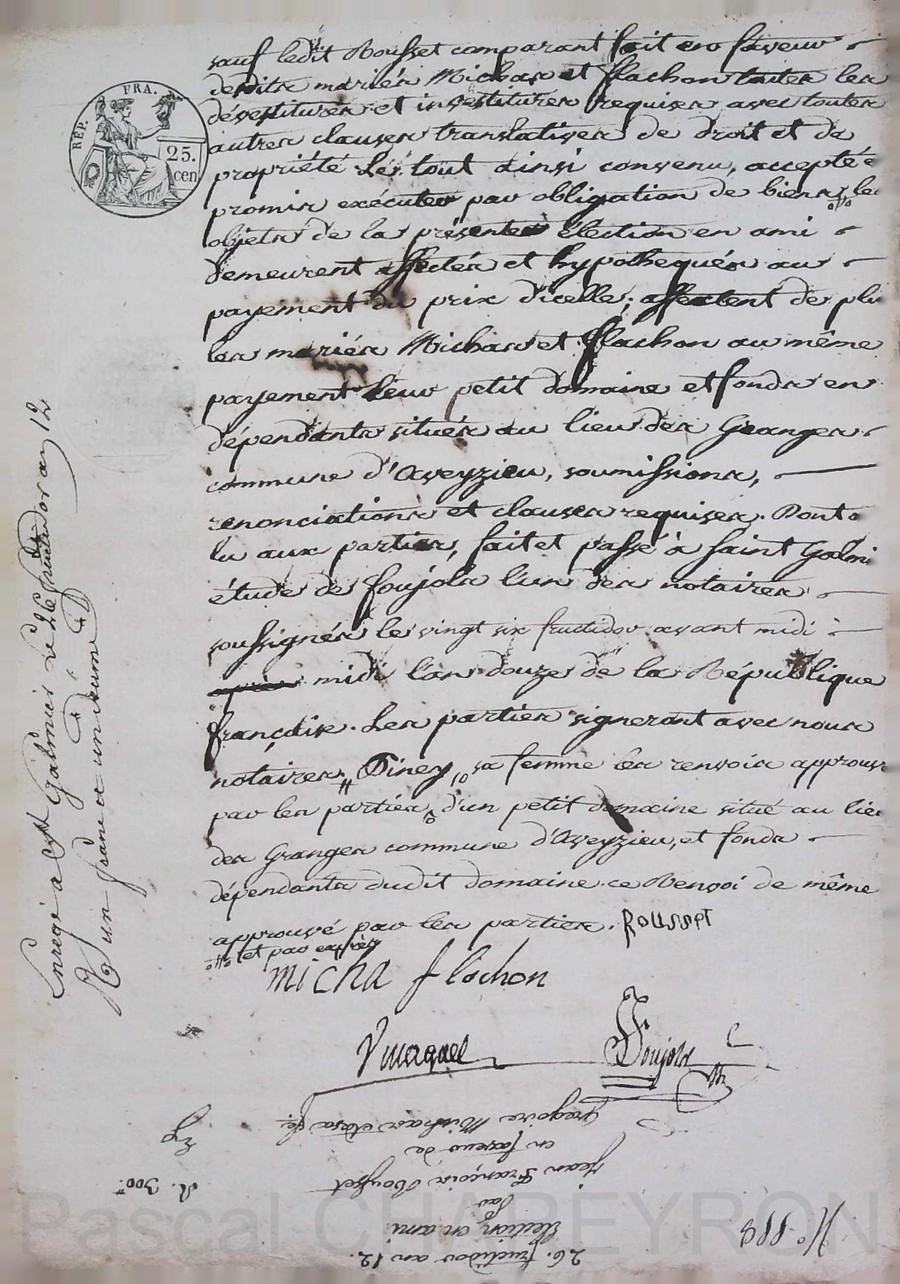 RÉP. FRA.
25.
cen
sauf ledit Rousset comparant fait en faveur
desdits mariés Michas et flachon toutes les
dévestitures et investitures requises avec toutes
autres clauses translatives de droit et de
propriété Le tout ainsi convenu, accepté
promis exécuter par obligation de biens les
objets de la présente élection en ami
demeurent affectés et hypothequés au
payement du prix d'icelle; affectent de plus
les mariés Michas et flachon au même
payement leur petit domaine et fonds en
dépendants situés au lieu des Granges
commune d'Aveyzieu, soumissions,
renonciations et clauses requises. Dont
lu aux parties, fait et passé à Saint Galmi
étude de foujols l'un des notaires
soussignés le vingt six fructidor avant midi
midi l'an douze de la République
françoise. Les parties signeront avec nous
notaires, sa femme les renvois approuvé
par les parties, d'un petit domaine situé au lieu
des Granges commune d'Aveyzieu, et fonds
dépendants dudit domaine ce Renvoi de même
approuvé par les parties. Rousset
et par exprès
micha flachon
Foujols
Enregé à St Galmier Le 26 fructidor an 12
R un franc
26. fructidor an 12.
élection en ami
Par
Jean François Rousset
en faveur de
Gregoire Michas et sa fe.
R. 300
N.º 888
Pascal CHAPEYRON